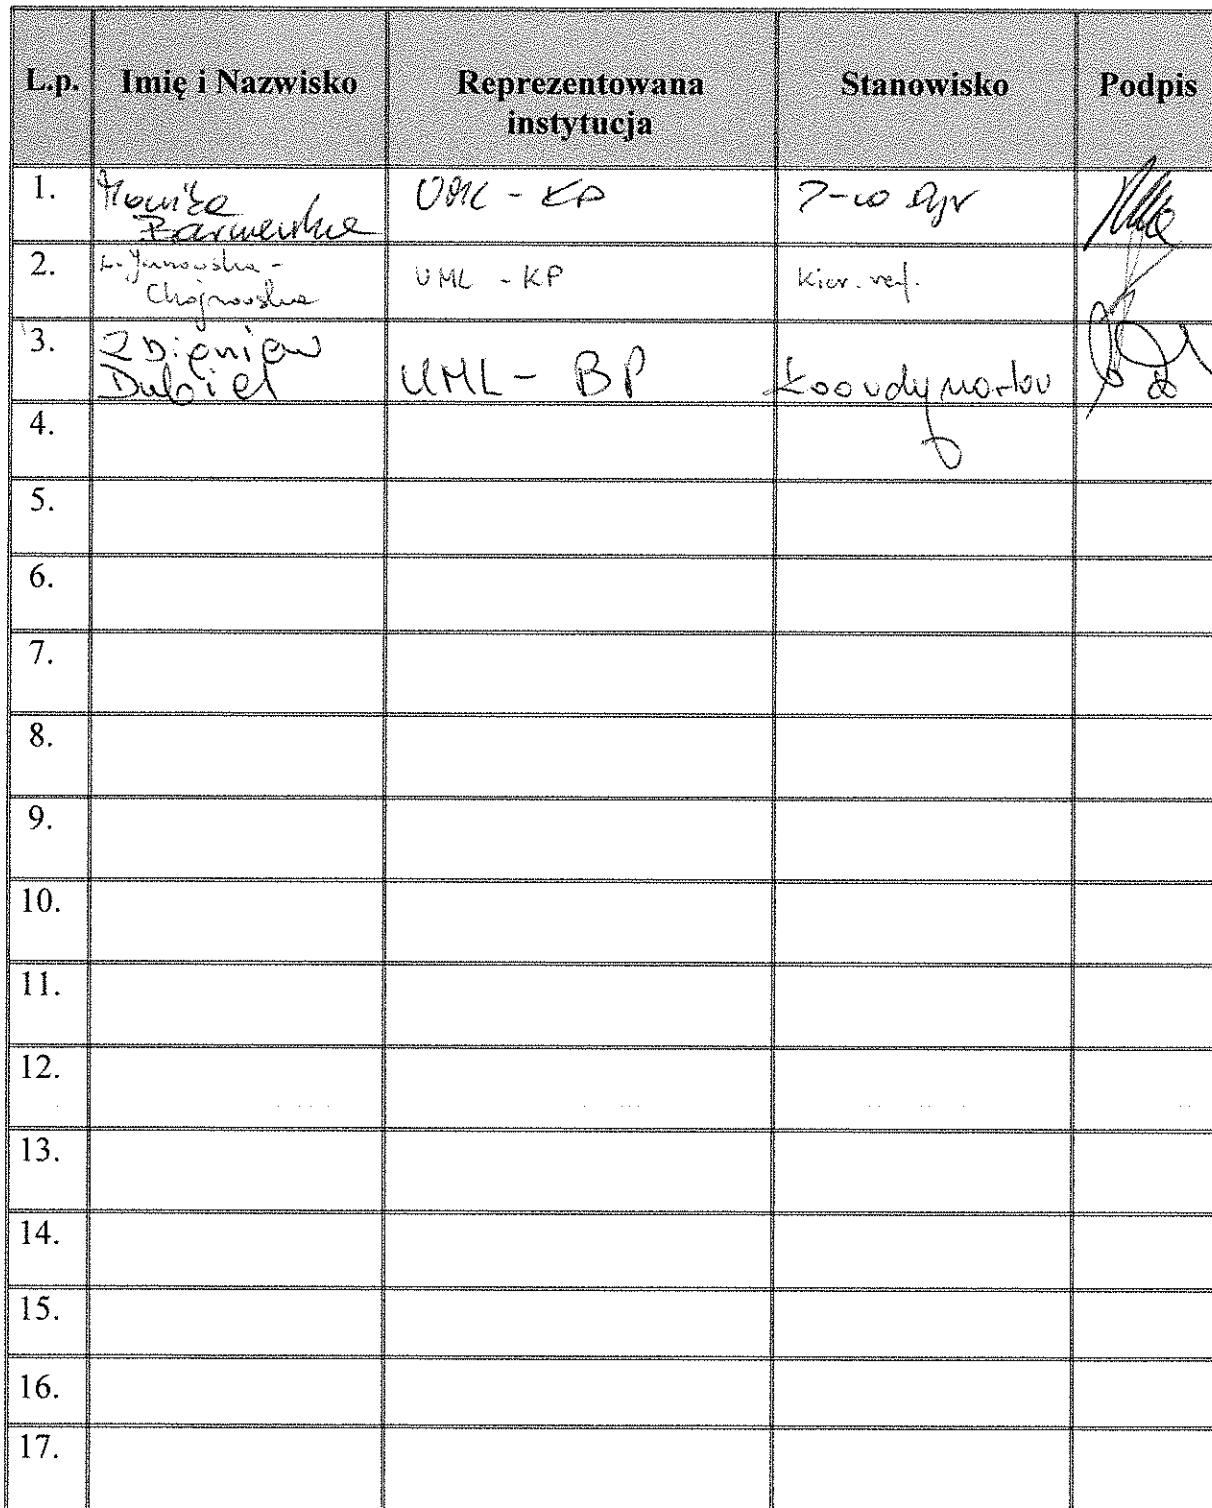 L.p. Imię i Nazwisko Reprezentowana instytucja Stanowisko Podpis
1. Monika UML - KP Z-ca Dyr
2. Janowska - UML - KP Kier. ref.
Chojnowska
3. Zbigniew
Dubiel UML - BP Koordynator
4.
5.
6.
7.
8.
9.
10.
11.
12.
13.
14.
15.
16.
17.